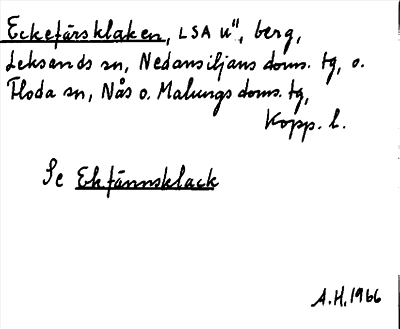 Eckefärsklaken, LSA u", berg,
Leksands sn, Nedansiljans doms. tg, o.
Floda sn, Nås o. Malungs doms. tg,
Kopp. l.
Se Ekfännsklack
A.H. 1966